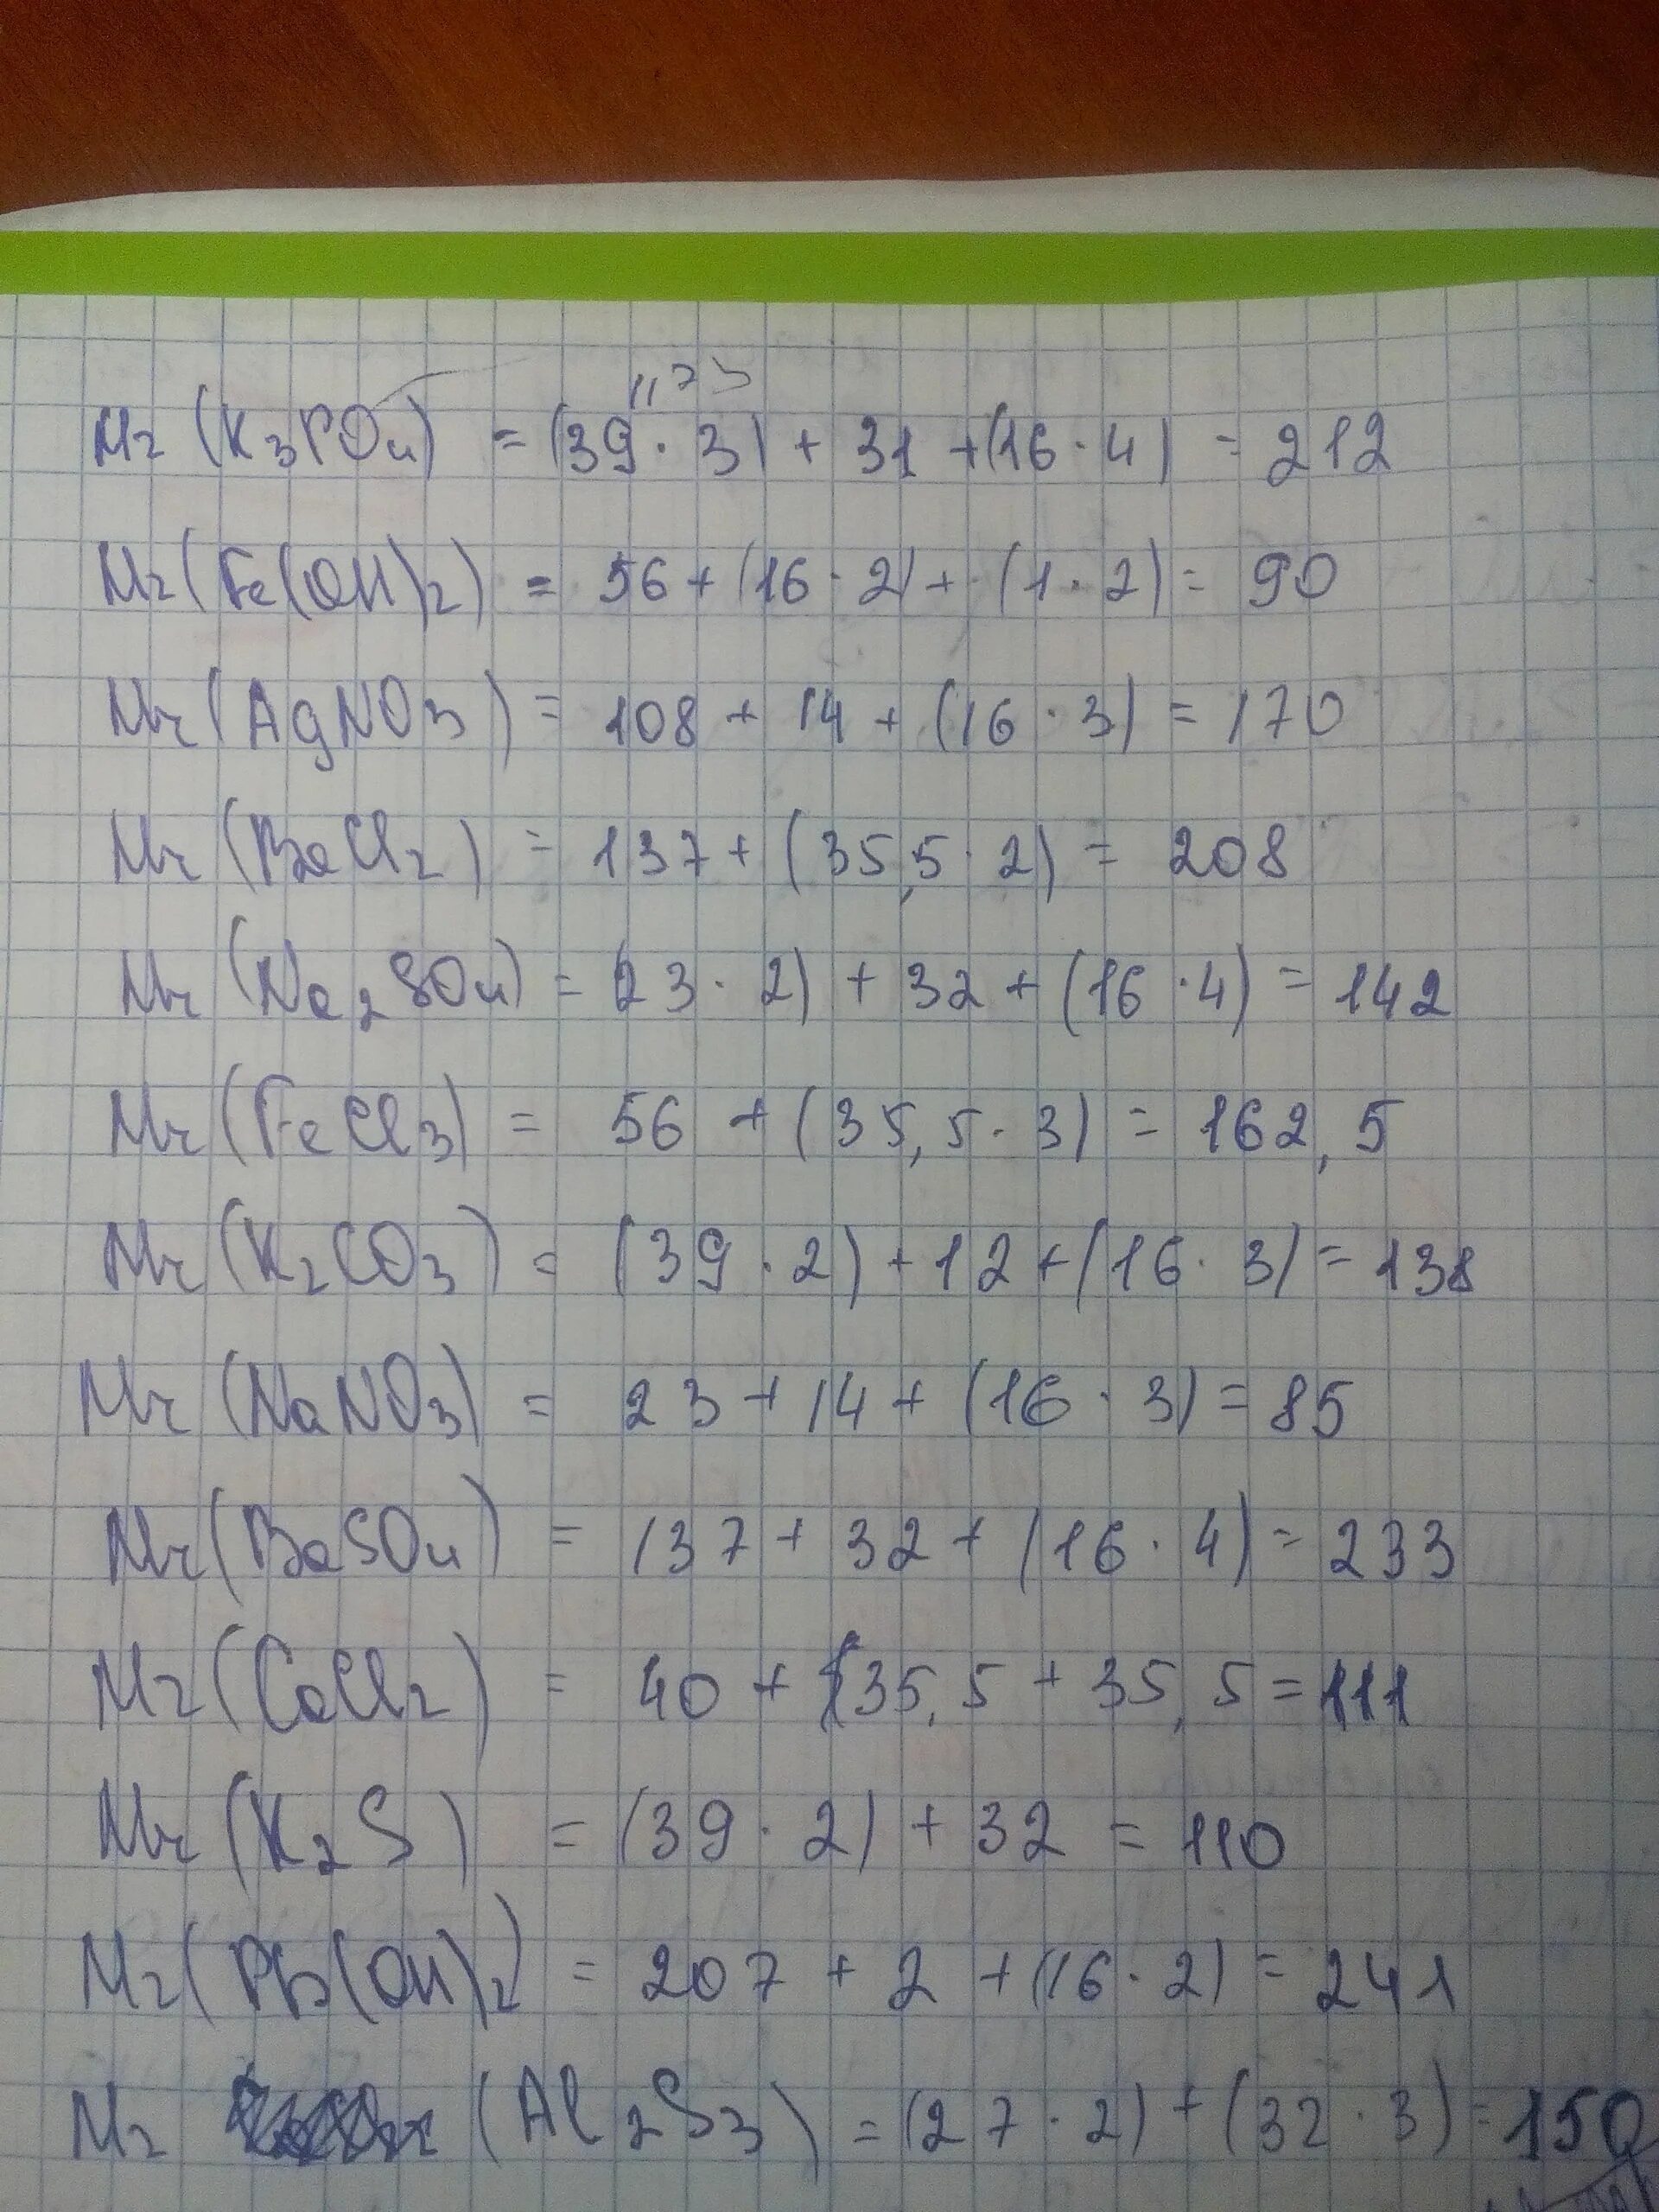 117
Mr (K3PO4) = (39 · 3) + 31 + (16 · 4) = 212
Mr (Fe(OH)2) = 56 + (16 · 2) + (1 · 2) = 90
Mr (AgNO3) = 108 + 14 + (16 · 3) = 170
Mr (BaCl2) = 137 + (35,5 · 2) = 208
Mr (Na2SO4) = (23 · 2) + 32 + (16 · 4) = 142
Mr (FeCl3) = 56 + (35,5 · 3) = 162,5
Mr (K2CO3) = (39 · 2) + 12 + (16 · 3) = 138
Mr (NaNO3) = 23 + 14 + (16 · 3) = 85
Mr (BaSO4) = 137 + 32 + (16 · 4) = 233
Mr (CaCl2) = 40 + 35,5 + 35,5 = 111
Mr (K2S) = (39 · 2) + 32 = 110
Mr (Pb(OH)2) = 207 + 2 + (16 · 2) = 241
Mr (Al2S3) = (27 · 2) + (32 · 3) = 150